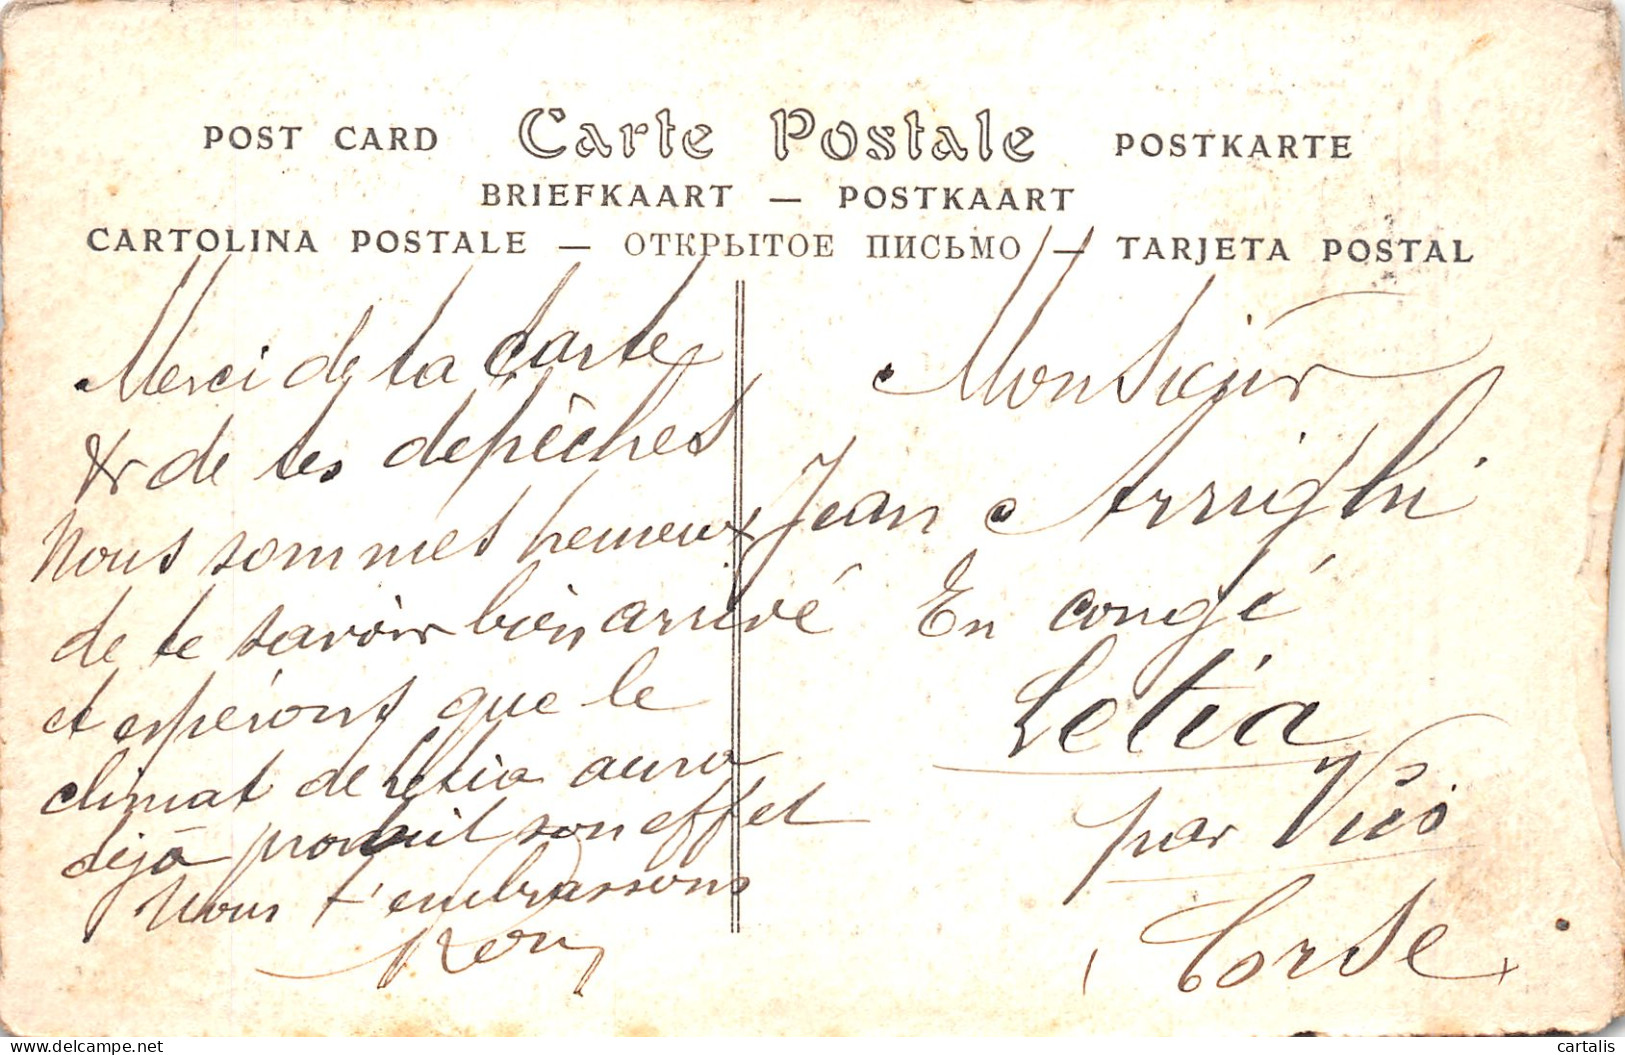 POST CARD Carte Postale POSTKARTE
BRIEFKAART — POSTKAART
CARTOLINA POSTALE — ОТКРЫТОЕ ПИСЬМО — TARJETA POSTAL
Merci de ta carte
& de tes depêches
Nous sommes heureux
de te savoir bien arrivé
et espérons que le
climat de Letia aura
déjà produit son effet
Nous t'embrassons
Monsieur
Jean Arrighi
En congé
Letia
par Vico
Corse
cartalis